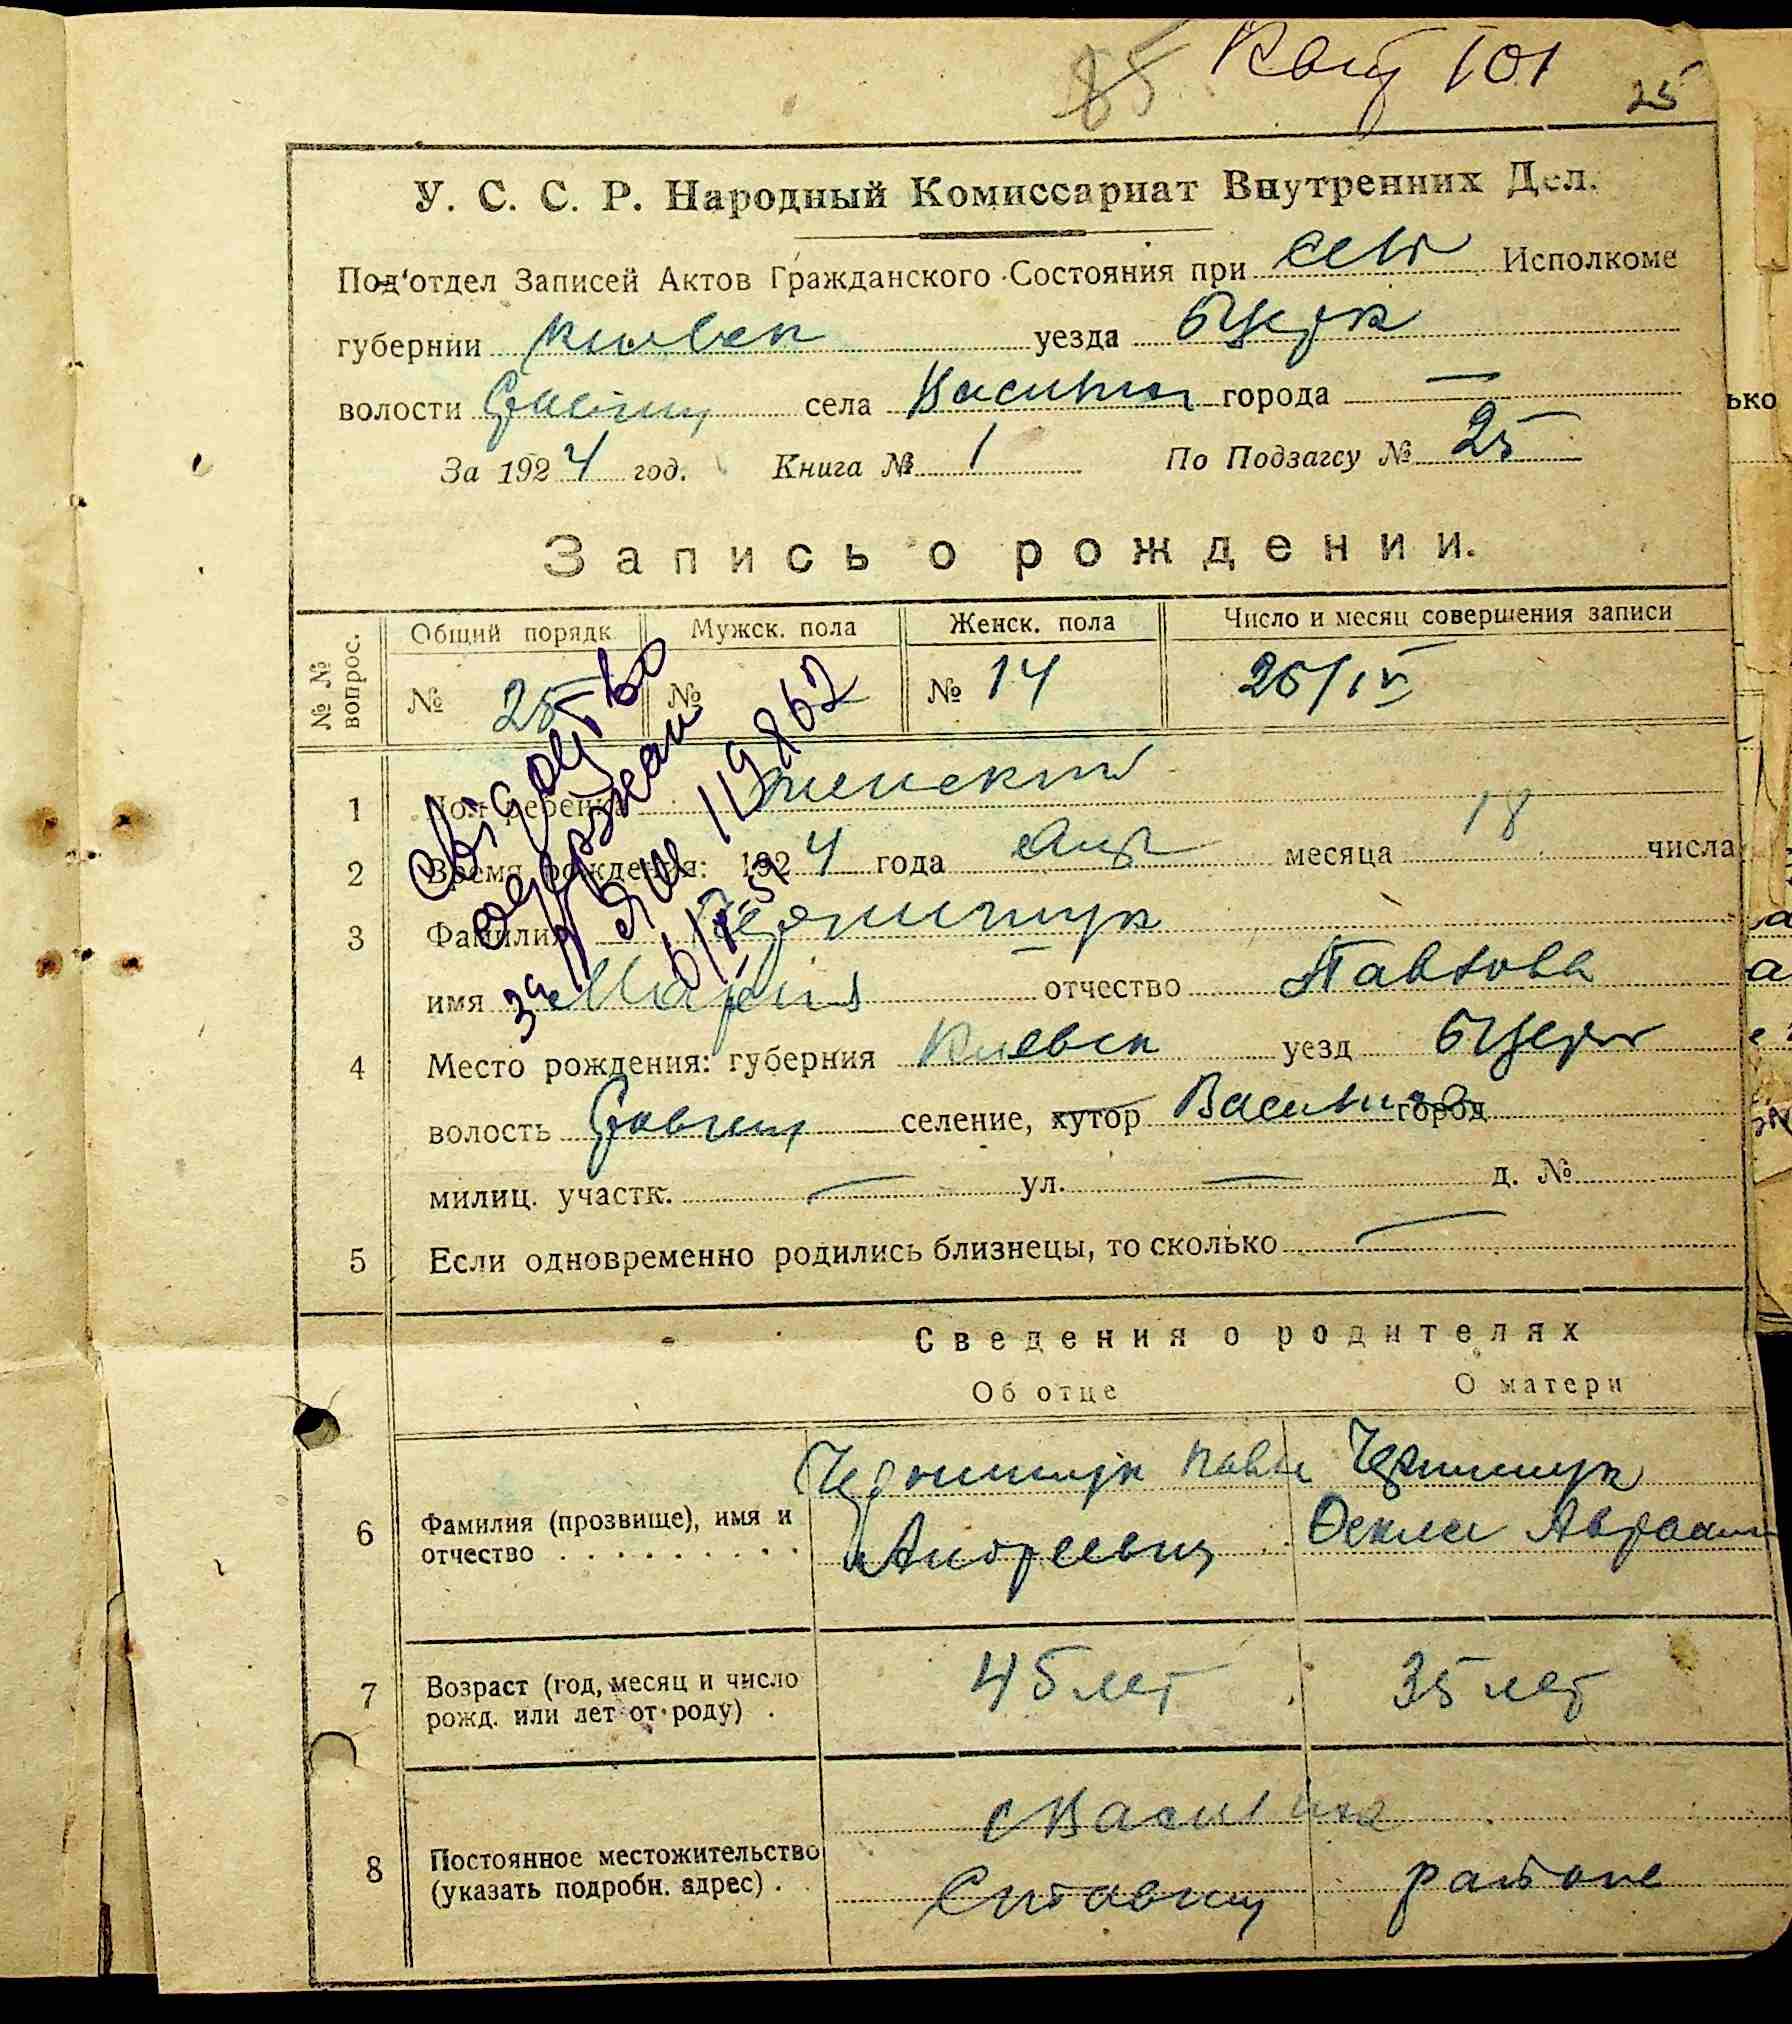 85 101
25
У. С. С. Р. Народный Комиссариат Внутренних Дел.
Под'отдел Записей Актов Гражданского Состояния при сель Исполкоме
губернии Киевск уезда БЦерк
волости села Василиха города —
За 1924 год. Книга № 1 По Подзагсу № 25
Запись о рождении.
№ № вопрос. Общий порядк Мужск. пола Женск. пола Число и месяц совершения записи
№ 25 № № 14 25/IV
1 Пол ребенка женский
2 Время рождения: 1924 года Апр месяца 18 числа
3 Фамилия Чернищук
имя Мария отчество Павлова
4 Место рождения: губерния Киевск уезд БЦерк
волость селение, хутор Василиха город
милиц. участк. — ул. — д. №
5 Если одновременно родились близнецы, то сколько —
свідоцтво
одержан
за 119862
Сведения о родителях
Об отце О матери
6 Фамилия (прозвище), имя и отчество Чернищук Павел Андреевич Чернищук Авраам
7 Возраст (год, месяц и число рожд. или лет от роду) 45 лет 35 лет
8 Постоянное местожительство (указать подробн. адрес) с Василиха
Ставищ районе
ько